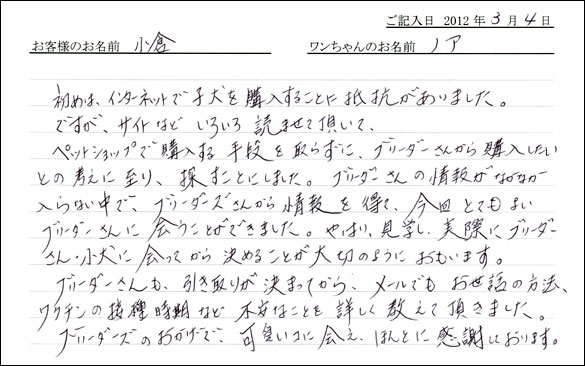 ご記入日 2012年3月4日
お客様のお名前 小倉 ワンちゃんのお名前 ノア
初めは、インターネットで子犬を購入することに抵抗がありました。
ですが、サイトなど いろいろ 読ませて頂いて、
ペットショップで購入する 手段を取らずに、ブリーダーさんから購入したい
との考えに至り、探すことにしました。ブリーダーさんの情報がなかなか
入らない中で、ブリーダーズさんから情報を得て、今回 とてもよい
ブリーダーさんに 会うことができました。やはり、見学し、実際にブリーダー
さん・小犬に会ってから決めることが大切のようにおもいます。
ブリーダーさんも、引き取りが決まってから、メールでもお世話の方法、
ワクチンの接種時期など 不安なことを詳しく教えて頂きました。
ブリーダーズのおかげで、可愛いコに会え、ほんとに感謝しております。